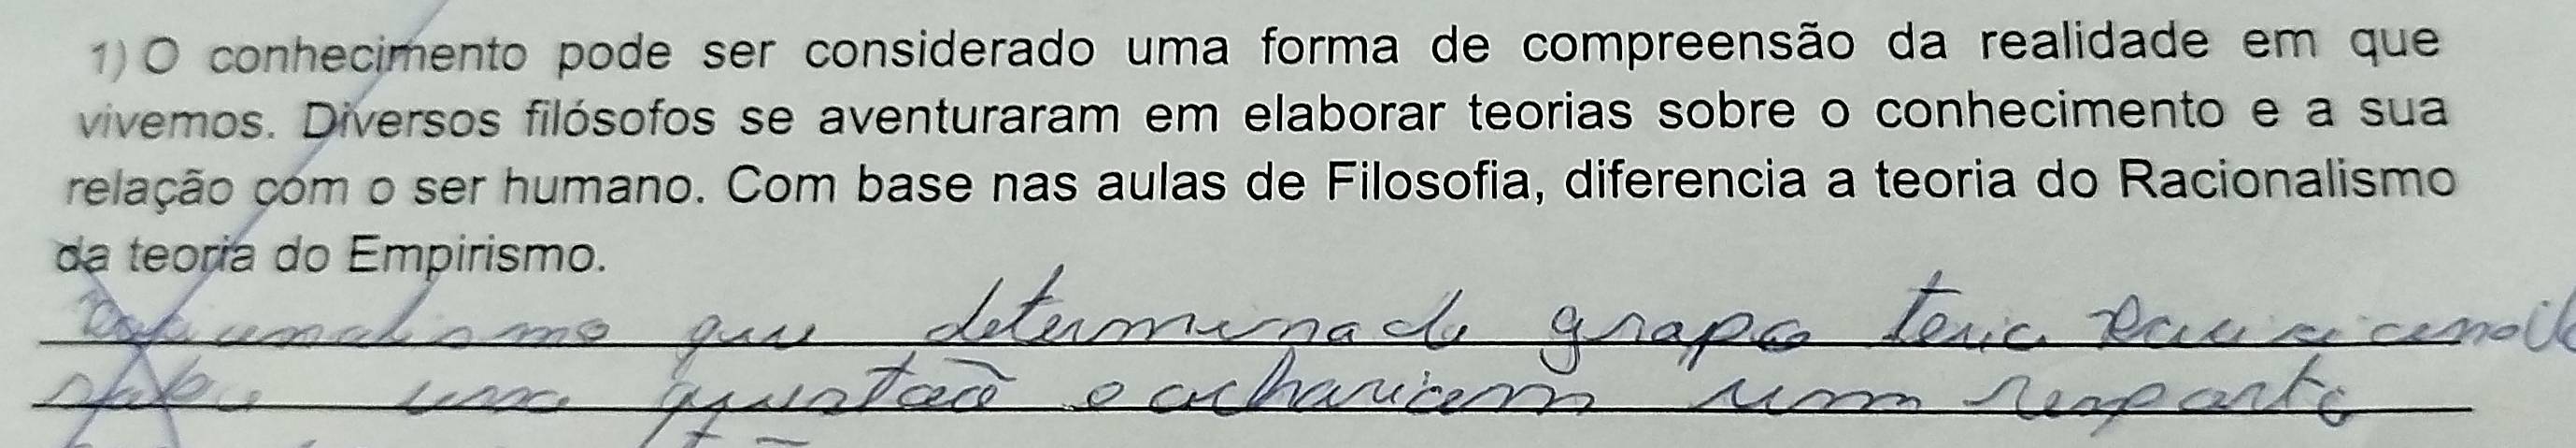 1) O conhecimento pode ser considerado uma forma de compreensão da realidade em que
vivemos. Diversos filósofos se aventuraram em elaborar teorias sobre o conhecimento e a sua
relação com o ser humano. Com base nas aulas de Filosofia, diferencia a teoria do Racionalismo
da teoria do Empirismo.
que determinado grapo teria
sobre uma questão e achariam um resparta